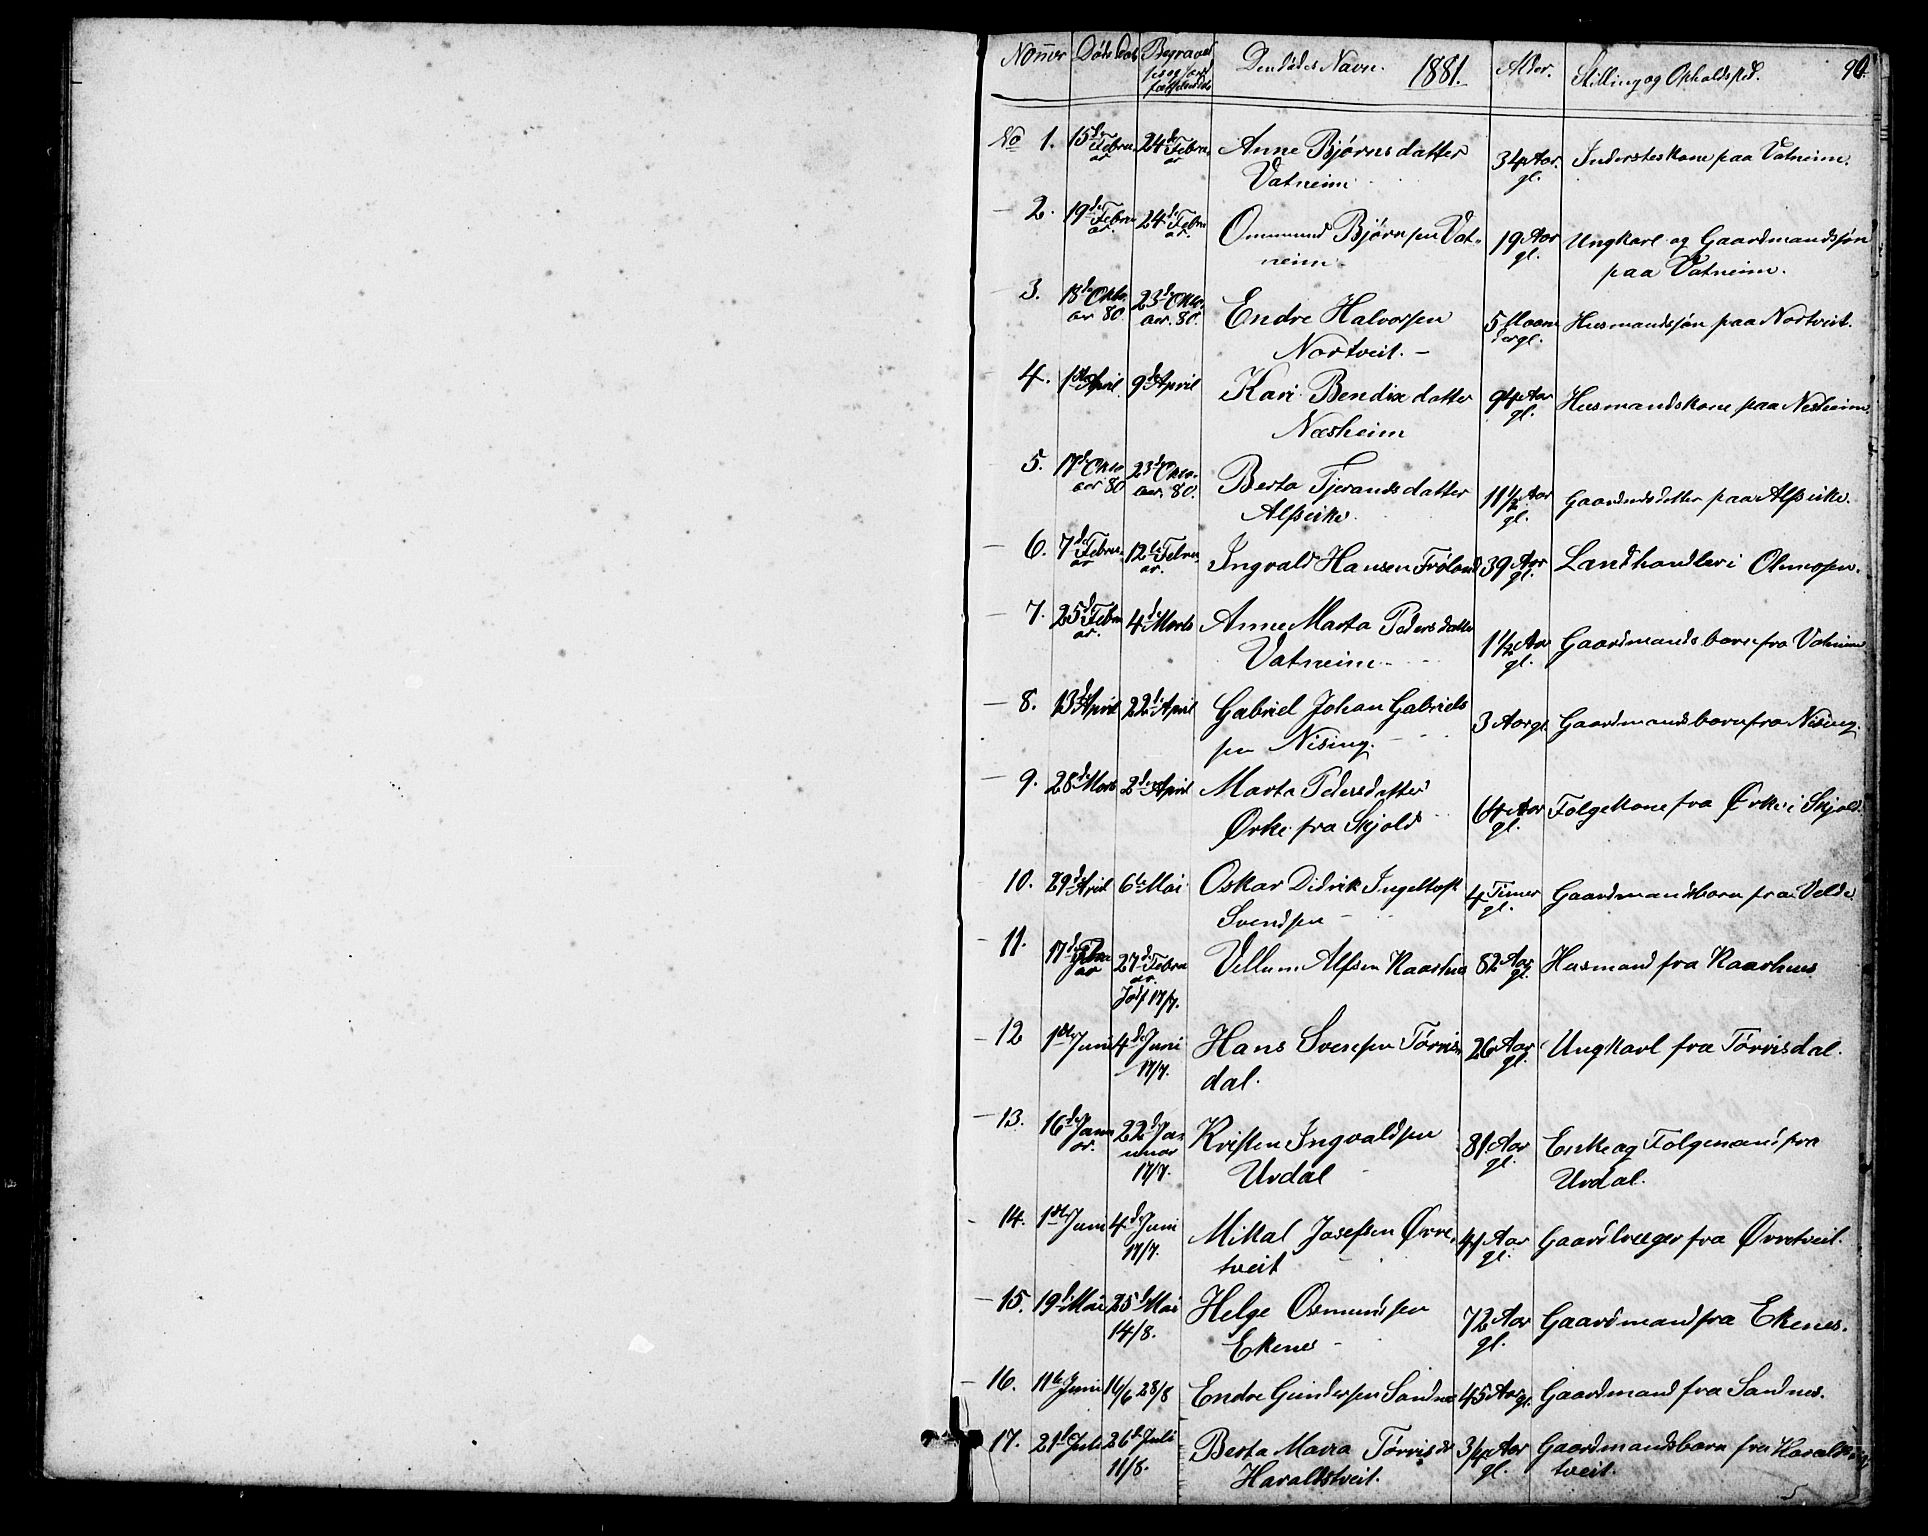 Nomer Døds Dato Begravel Den dødes Navn. 1881. Alder. Stilling og Opholdsted. 90.
No 1. 15de Februar 24de Februar Anne Bjørnsdatter 34 Aar gl. Inderstekone paa Vatneim.
Vatneim
2. 19de Februar 24de Februar Ommund Bjørnsen Vat- 19 Aar gl. Ungkarl og Gaardmandssøn
neim paa Vatneim.
3. 18de Oktober 80. 23de Oktober. 80. Endre Halvorsen 5 Maaneder gl. Husmandssøn paa Nortveit.
Nortveit.
4. 1ste April 9de April Kari Bendixdatter 94 Aar gl. Husmandskone paa Nesheim
Næsheim
5. 17de 80 23de 80. Berta Tjerandsdatter 11 1/2 Aar gl. paa Alfseike.
Alfseike.
6. 7de Februar 12te Februar. Ingvald Hansen Frøland 39 Aar gl. Landhandler i Ølmosen.
7. 25de Februar. 4de Marts Anne Marta Pedersdatter 1 1/2 Aar gl. Gaardmandsbarn fra Vatneim
Vatneim
8. 13de April 22de April Gabriel Johan Gabriels 3 Aar gl. Gaardmandsbarn fra Nising.
sen Nising.
9. 28de Mars 2den April Marta Pedersdatter 64 Aar gl. Folgekone fra Ørke i Skjold.
Ørke fra Skjold
10. 29de April 6te Mai Oskar Didrik Ingeltoft 4 Timer gl. Gaardmandsbarn fra Velde.
Svendsen
11. 17de Februar 27de Februar. Vellum Alfsen Kaarhus 82 Aar gl. Husmand fra Kaarhus.
Jordf 17/7.
12 1ste Juni 4de Juni Hans Svensen Tørvis 26 Aar gl. Ungkarl fra Tørvisdal.
17/7. dal.
13. 16de Januar. 22de Januar Kristen Ingvaldsen 81 Aar gl. Enke og Folgemand fra
17/7. Urdal Urdal.
14. 1ste Juni 4de Juni Mikal Josefsen Ørre, 41 Aar gl. Gaardbruger fra Ørretveit.
17/7. tveit
15. 19de Mai 25de Mai Helge Osmundsen 72 Aar gl. Gaardmand fra Ekenes.
14/8. Ekenes
16. 11te Juni 16/6 28/8 Endre Gundersen Sandnes 45 Aar gl. Gaardmand fra Sandnes.
17. 21de Juli 26de Juli Berta Maria Tørrisdr 3/4 Aar gl. Gaardmandsbarn fra Haralds
11/8. Haraldstveit. tveit.